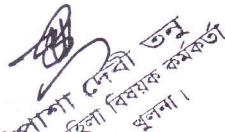 পাশা দেবী তনু
মহিলা বিষয়ক কর্মকর্তা
খুলনা।